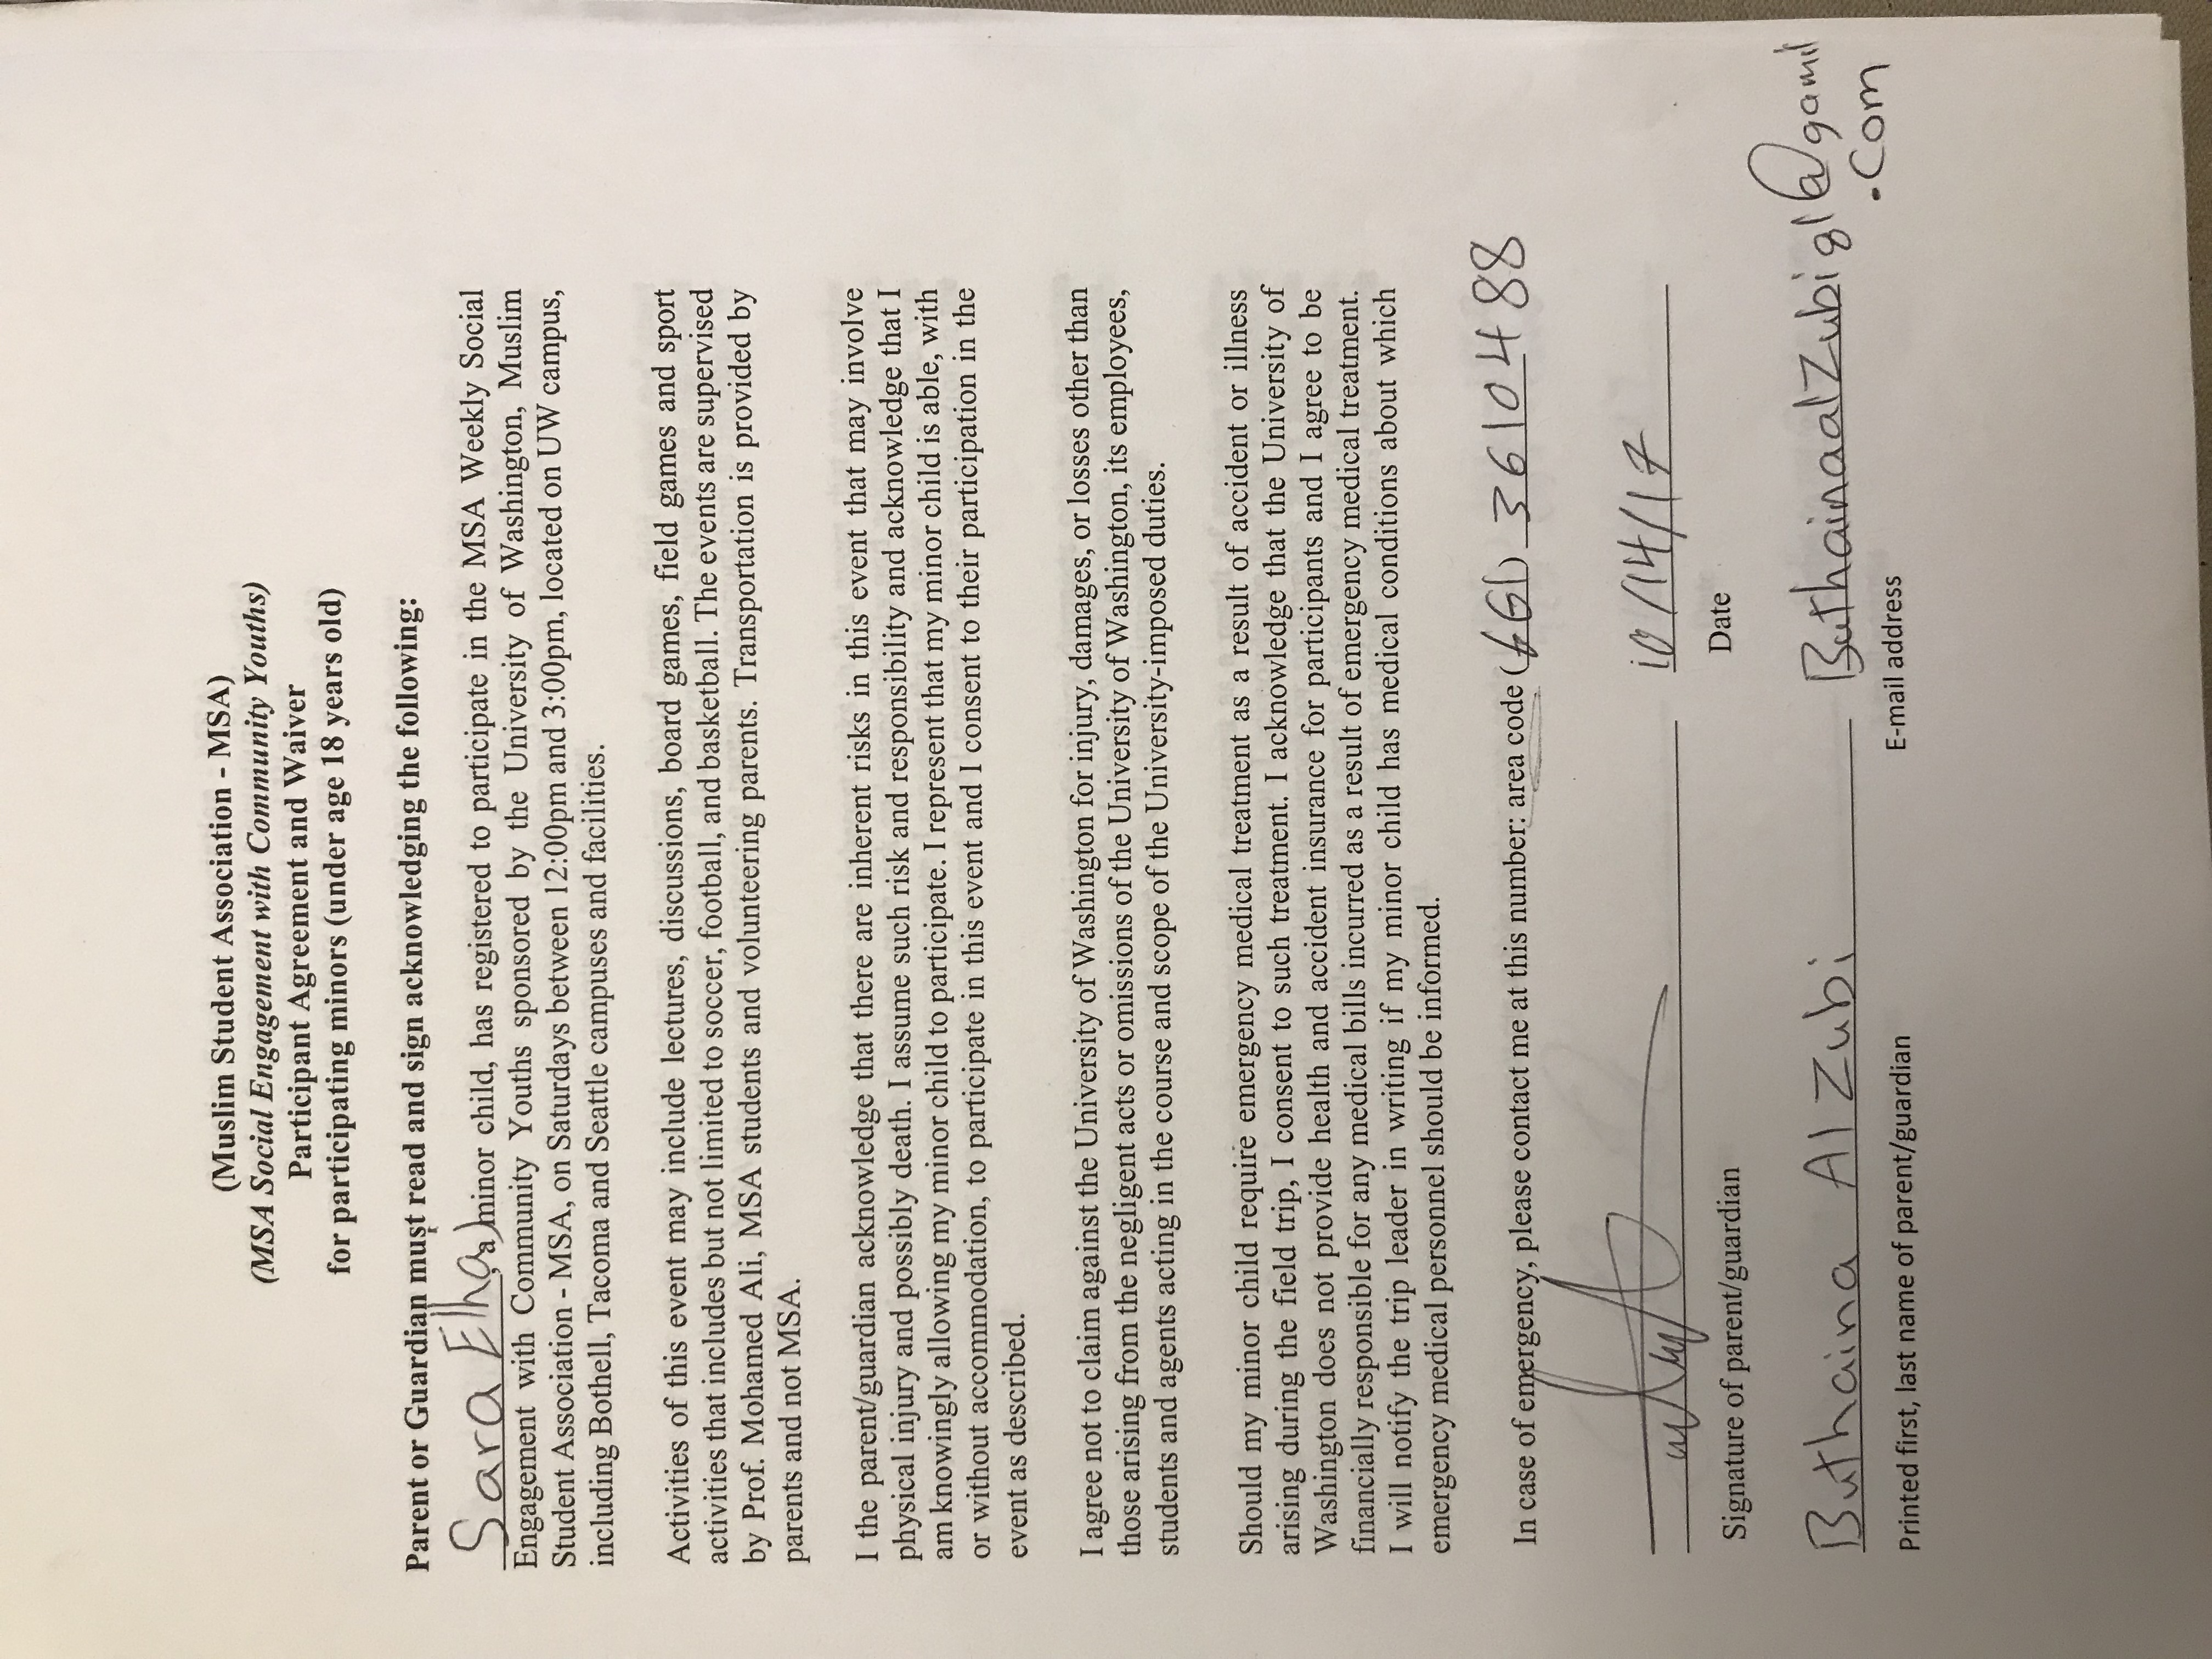 (Muslim Student Association - MSA)
(MSA Social Engagement with Community Youths)
Participant Agreement and Waiver
for participating minors (under age 18 years old)
Parent or Guardian must read and sign acknowledging the following:
Sara , a minor child, has registered to participate in the MSA Weekly Social
Engagement with Community Youths sponsored by the University of Washington, Muslim
Student Association - MSA, on Saturdays between 12:00pm and 3:00pm, located on UW campus,
including Bothell, Tacoma and Seattle campuses and facilities.
Activities of this event may include lectures, discussions, board games, field games and sport
activities that includes but not limited to soccer, football, and basketball. The events are supervised
by Prof. Mohamed Ali, MSA students and volunteering parents. Transportation is provided by
parents and not MSA.
I the parent/guardian acknowledge that there are inherent risks in this event that may involve
physical injury and possibly death. I assume such risk and responsibility and acknowledge that I
am knowingly allowing my minor child to participate. I represent that my minor child is able, with
or without accommodation, to participate in this event and I consent to their participation in the
event as described.
I agree not to claim against the University of Washington for injury, damages, or losses other than
those arising from the negligent acts or omissions of the University of Washington, its employees,
students and agents acting in the course and scope of the University-imposed duties.
Should my minor child require emergency medical treatment as a result of accident or illness
arising during the field trip, I consent to such treatment. I acknowledge that the University of
Washington does not provide health and accident insurance for participants and I agree to be
financially responsible for any medical bills incurred as a result of emergency medical treatment.
I will notify the trip leader in writing if my minor child has medical conditions about which
emergency medical personnel should be informed.
In case of emergency, please contact me at this number: area code (661) 3610488
10/14/17
Signature of parent/guardian Date
Buthaina Al Zubi Buthainaalzubi81@gamil
.com
Printed first, last name of parent/guardian E-mail address